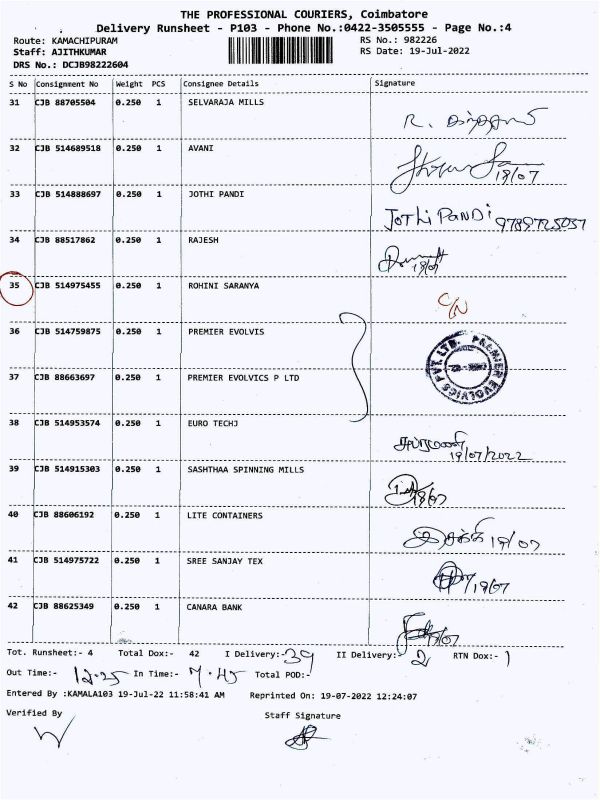 THE PROFESSIONAL COURIERS, Coimbatore
Delivery Runsheet - P103 - Phone No.:0422-3505555 - Page No.:4
Route: KAMACHIPURAM RS No.: 982226
Staff: AJITHKUMAR RS Date: 19-Jul-2022
DRS No.: DCJB98222604
S No Consignment No Weight PCS Consignee Details Signature
31 CJB 88705504 0.250 1 SELVARAJA MILLS
R.
32 CJB 514689518 0.250 1 AVANI
19/07
33 CJB 514888697 0.250 1 JOTHI PANDI
JOTHI PANDI 9789725037
34 CJB 88517862 0.250 1 RAJESH
19/07
35 CJB 514975455 0.250 1 ROHINI SARANYA
C/N
36 CJB 514759875 0.250 1 PREMIER EVOLVIS
PREMIER EVOLVICS PVT. LTD.
37 CJB 88663697 0.250 1 PREMIER EVOLVICS P LTD
38 CJB 514953574 0.250 1 EURO TECHJ
19/07/2022
39 CJB 514915303 0.250 1 SASHTHAA SPINNING MILLS
19/07
40 CJB 88606192 0.250 1 LITE CONTAINERS
19/07
41 CJB 514975722 0.250 1 SREE SANJAY TEX
19/07
42 CJB 88625349 0.250 1 CANARA BANK
19/07
Tot. Runsheet:- 4 Total Dox:- 42 I Delivery:- 39 II Delivery:- 2 RTN Dox:- 1
Out Time:- 12.25 In Time:- 7.45 Total POD:-
Entered By :KAMALA103 19-Jul-22 11:58:41 AM Reprinted On: 19-07-2022 12:24:07
Verified By Staff Signature